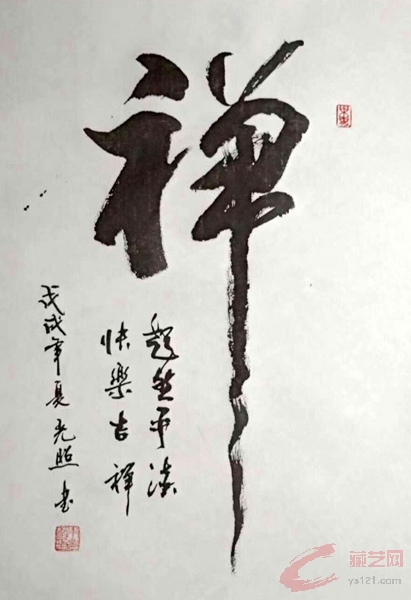 禅
平淡
快樂吉祥
戊戌年夏光照书
藏艺网
ys121.com